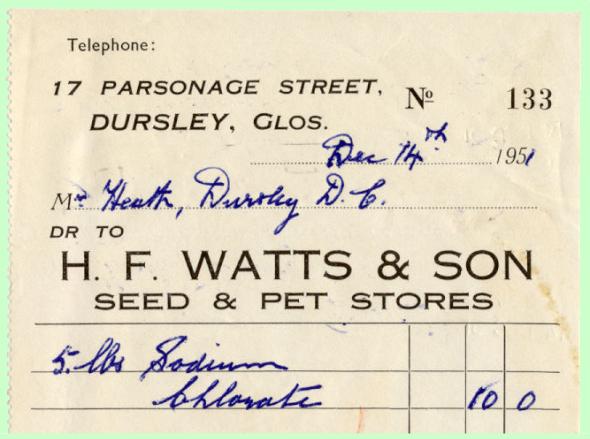 Telephone:
17 PARSONAGE STREET,
DURSLEY, GLOS.
No 133
Dec 14th 1951
Mr Heath, Dursley D. C.
DR TO
H. F. WATTS & SON
SEED & PET STORES
5 lbs Sodium
Chlorate 10 0